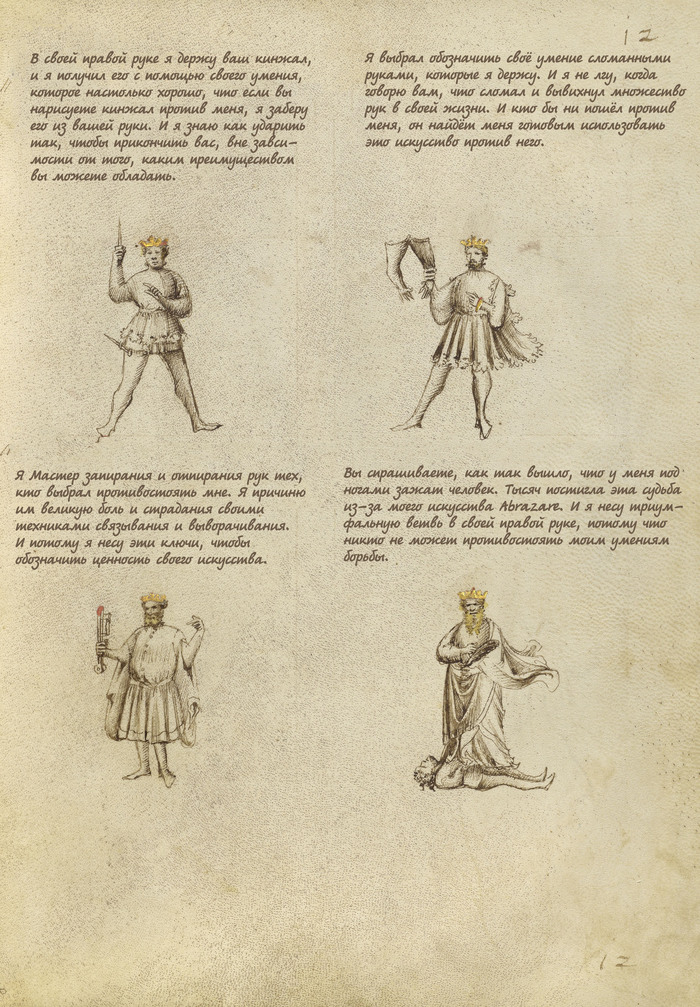 12
В своей правой руке я держу ваш кинжал,
и я получил его с помощью своего умения,
которое настолько хорошо, что если вы
нарисуете кинжал против меня, я заберу
его из вашей руки. И я знаю как ударить
так, чтобы прикончить вас, вне завси–
мости от того, каким преимуществом
вы можете обладать.
Я выбрал обозначить своё умение сломанными
руками, которые я держу. И я не лгу, когда
говорю вам, что сломал и вывихнул множество
рук в своей жизни. И кто бы ни пошёл против
меня, он найдёт меня готовым использовать
это искусство против него.
Я Мастер запирания и отпирания рук тех,
кто выбрал противостоять мне. Я причиню
им великую боль и страдания своими
техниками связывания и выворачивания.
И потому я несу эти ключи, чтобы
обозначить ценность своего искусства.
Вы спрашиваете, как так вышло, что у меня под
ногами зажат человек. Тысяч постигла эта судьба
из–за моего искусства Abrazare. И я несу триум–
фальную ветвь в своей правой руке, потому что
никто не может противостоять моим умениям
борьбы.
12